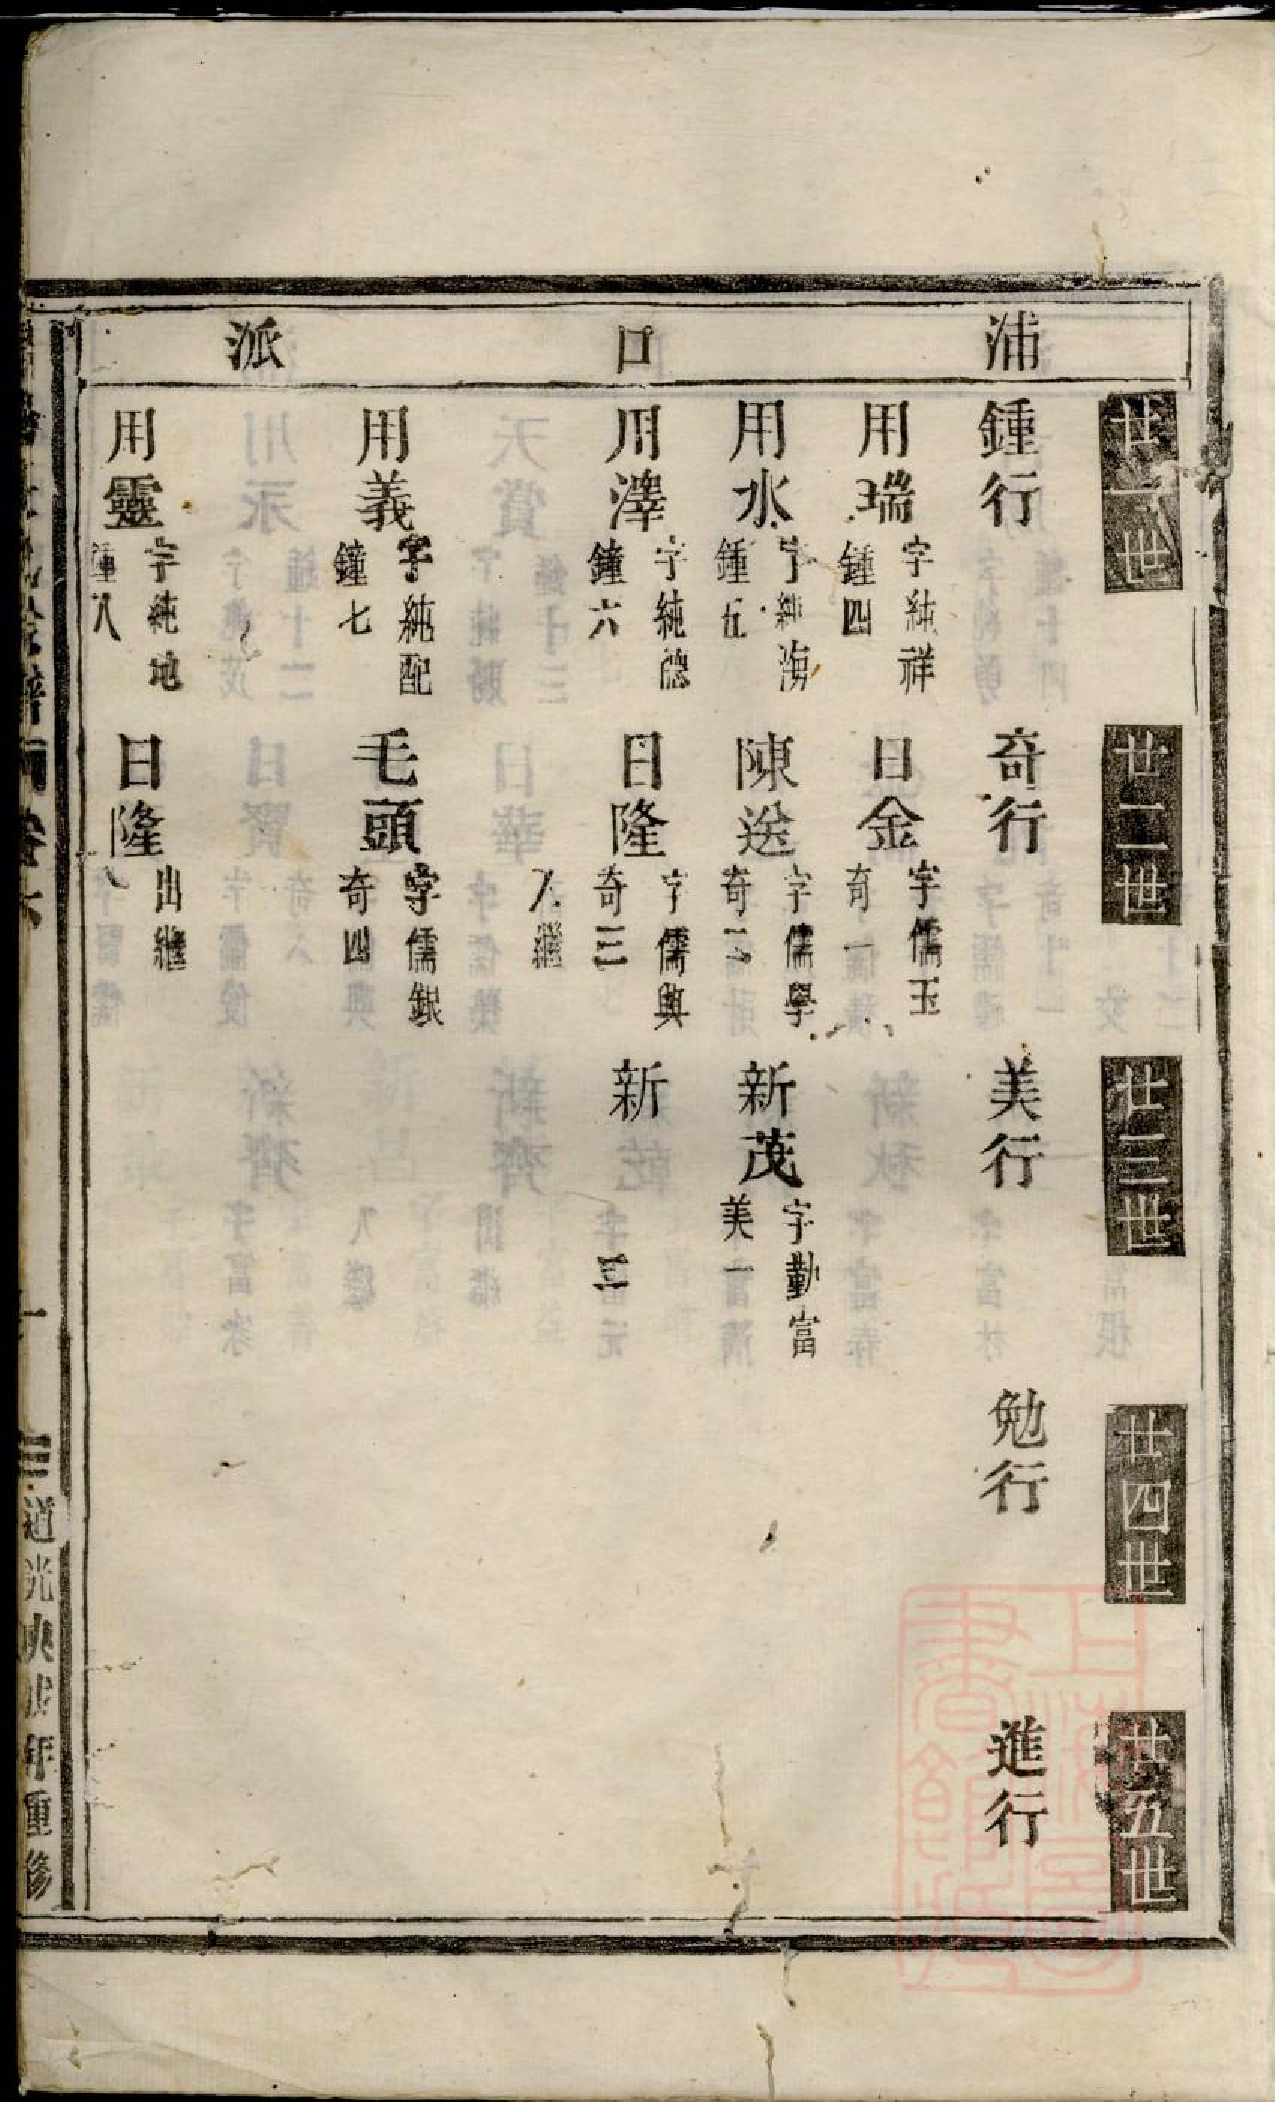 浦口派
廿一世
廿二世
廿三世
廿四世
廿五世
鍾行
奇行
美行
勉行
進行
用瑞
字純祥
鍾四
日金
字儒玉
奇一
用水
字純
鍾五
陳送
字儒學
奇二
新茂
字勤富
美一
用澤
字純德
鐘六
日隆
字儒興
奇三
入繼
新
三
用義
字純配
鐘七
毛頭
字儒銀
奇四
用靈
字純地
鍾八
日隆
出繼
道光庚戌年重修
上海圖書館藏